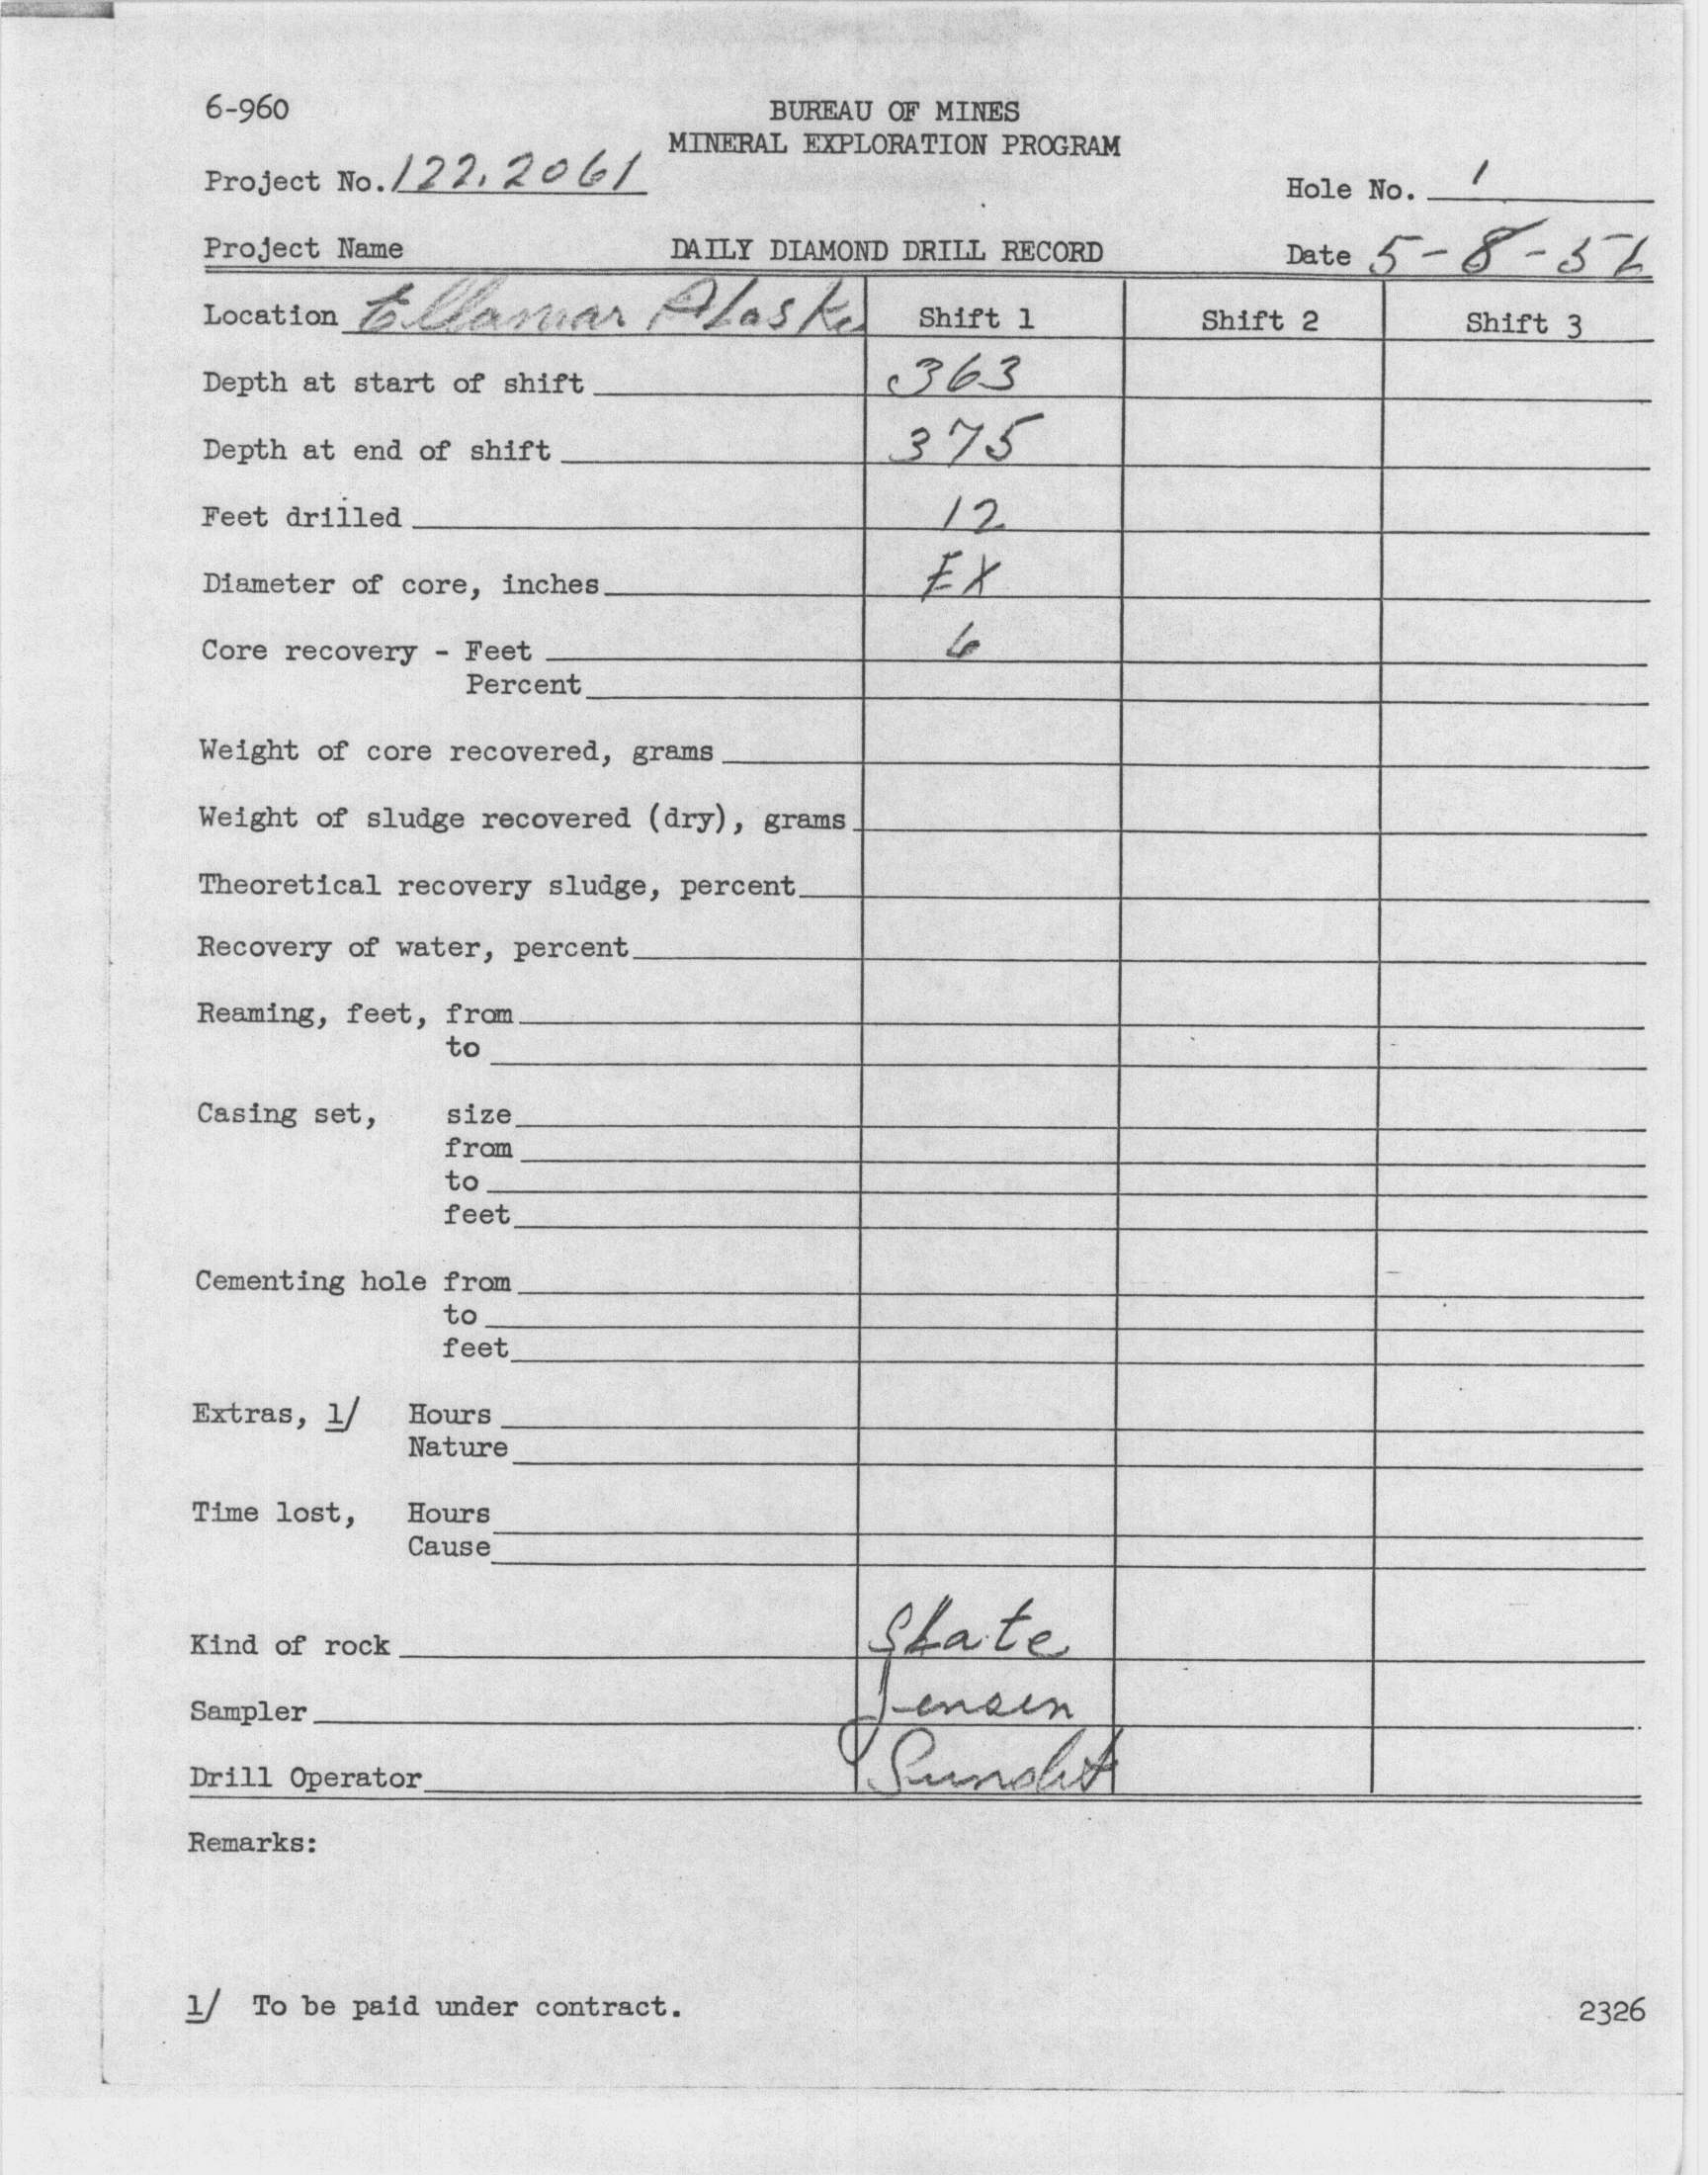 6-960
BUREAU OF MINES
MINERAL EXPLORATION PROGRAM
Project No. 122.2061
Hole No. 1
Project Name DAILY DIAMOND DRILL RECORD Date 5-8-52
Location Ellamar Alaska Shift 1 Shift 2 Shift 3
Depth at start of shift 363
Depth at end of shift 375
Feet drilled 12
Diameter of core, inches EX
Core recovery - Feet 6
Percent
Weight of core recovered, grams
Weight of sludge recovered (dry), grams
Theoretical recovery sludge, percent
Recovery of water, percent
Reaming, feet, from
to
Casing set, size
from
to
feet
Cementing hole from
to
feet
Extras, 1/ Hours
Nature
Time lost, Hours
Cause
Kind of rock Slate
Sampler Jensen
Drill Operator
Remarks:
1/ To be paid under contract.
2326